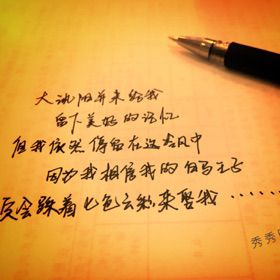 大沈阳并未给我
留下美好的记忆
但我依然停留在这古风中
因为我相信我的白马王子
会踩着七色云彩来娶我……
秀秀